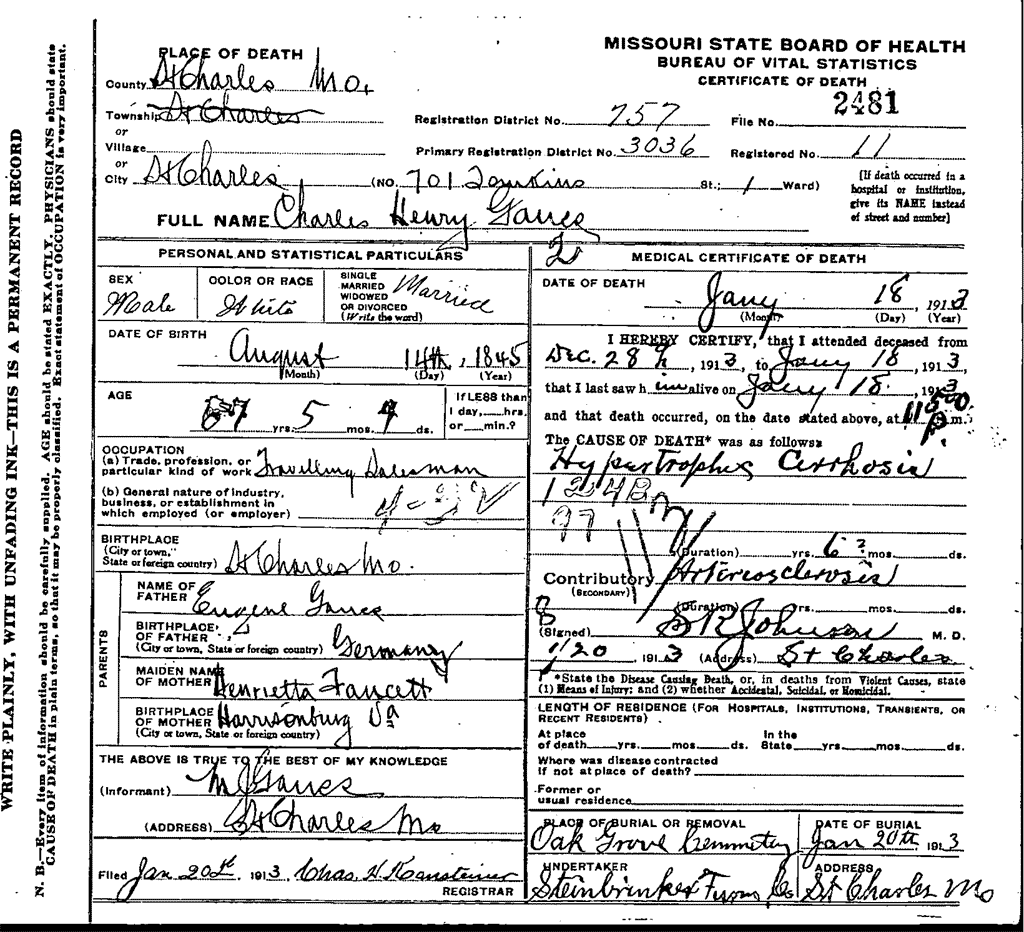 WRITE PLAINLY, WITH UNFADING INK—THIS IS A PERMANENT RECORD
N. B.—Every item of information should be carefully supplied. AGE should be stated EXACTLY. PHYSICIANS should state
CAUSE OF DEATH in plain terms, so that it may be properly classified. Exact statement of OCCUPATION is very important.
MISSOURI STATE BOARD OF HEALTH
BUREAU OF VITAL STATISTICS
CERTIFICATE OF DEATH
PLACE OF DEATH
County St Charles Mo.
Township St Charles
or
Village
or
City St Charles (NO. 701 Jenkins St.; 1 Ward)
Registration District No. 757 File No. 2481
Primary Registration District No. 3036 Registered No. 11
[If death occurred in a
hospital or institution,
give its NAME instead
of street and number]
FULL NAME Charles Henry Gauss
2
PERSONAL AND STATISTICAL PARTICULARS
SEX Male
COLOR OR RACE White
SINGLE
MARRIED
WIDOWED
OR DIVORCED
(Write the word)
Married
DATE OF BIRTH
August 14th, 1845
(Month) (Day) (Year)
AGE
67 yrs. 5 mos. 4 ds.
If LESS than
1 day, hrs.
or min.?
OCCUPATION
(a) Trade, profession, or
particular kind of work Travelling Salesman
(b) General nature of industry,
business, or establishment in
which employed (or employer)
BIRTHPLACE
(City or town,
State or foreign country) St Charles Mo.
PARENTS
NAME OF
FATHER Eugene Gauss
BIRTHPLACE
OF FATHER
(City or town, State or foreign country) Germany
MAIDEN NAME
OF MOTHER Henrietta Faucett
BIRTHPLACE
OF MOTHER Harrisonburg Va
(City or town, State or foreign country)
THE ABOVE IS TRUE TO THE BEST OF MY KNOWLEDGE
(Informant) Gauss
(ADDRESS) St Charles Mo
Filed Jan 20th 1913 Chas. H Kansteiner
REGISTRAR
MEDICAL CERTIFICATE OF DEATH
DATE OF DEATH
Jany 18, 1913
(Month) (Day) (Year)
I HEREBY CERTIFY, that I attended deceased from
Dec. 28, 1913, to Jany 18, 1913,
that I last saw him alive on Jany 18, 1913
and that death occurred, on the date stated above, at 1150 P.m.
The CAUSE OF DEATH* was as follows:
Hypertrophic Cirrhosis
124B
97
(Duration) yrs. 6? mos. ds.
Contributory Arteriosclerosis
(SECONDARY)
(Duration) yrs. mos. ds.
(Signed) Johnson M. D.
1/20 1913 (Address) St Charles
*State the Disease Causing Death, or, in deaths from Violent Causes, state
(1) Means of Injury; and (2) whether Accidental, Suicidal, or Homicidal.
LENGTH OF RESIDENCE (FOR HOSPITALS, INSTITUTIONS, TRANSIENTS, OR
RECENT RESIDENTS)
At place
of death yrs. mos. ds.
In the
State yrs. mos. ds.
Where was disease contracted
if not at place of death?
Former or
usual residence
PLACE OF BURIAL OR REMOVAL
Oak Grove Cemmetey
DATE OF BURIAL
Jan 20th, 1913
UNDERTAKER
Steinbrinker Furn Co
ADDRESS
St Charles Mo